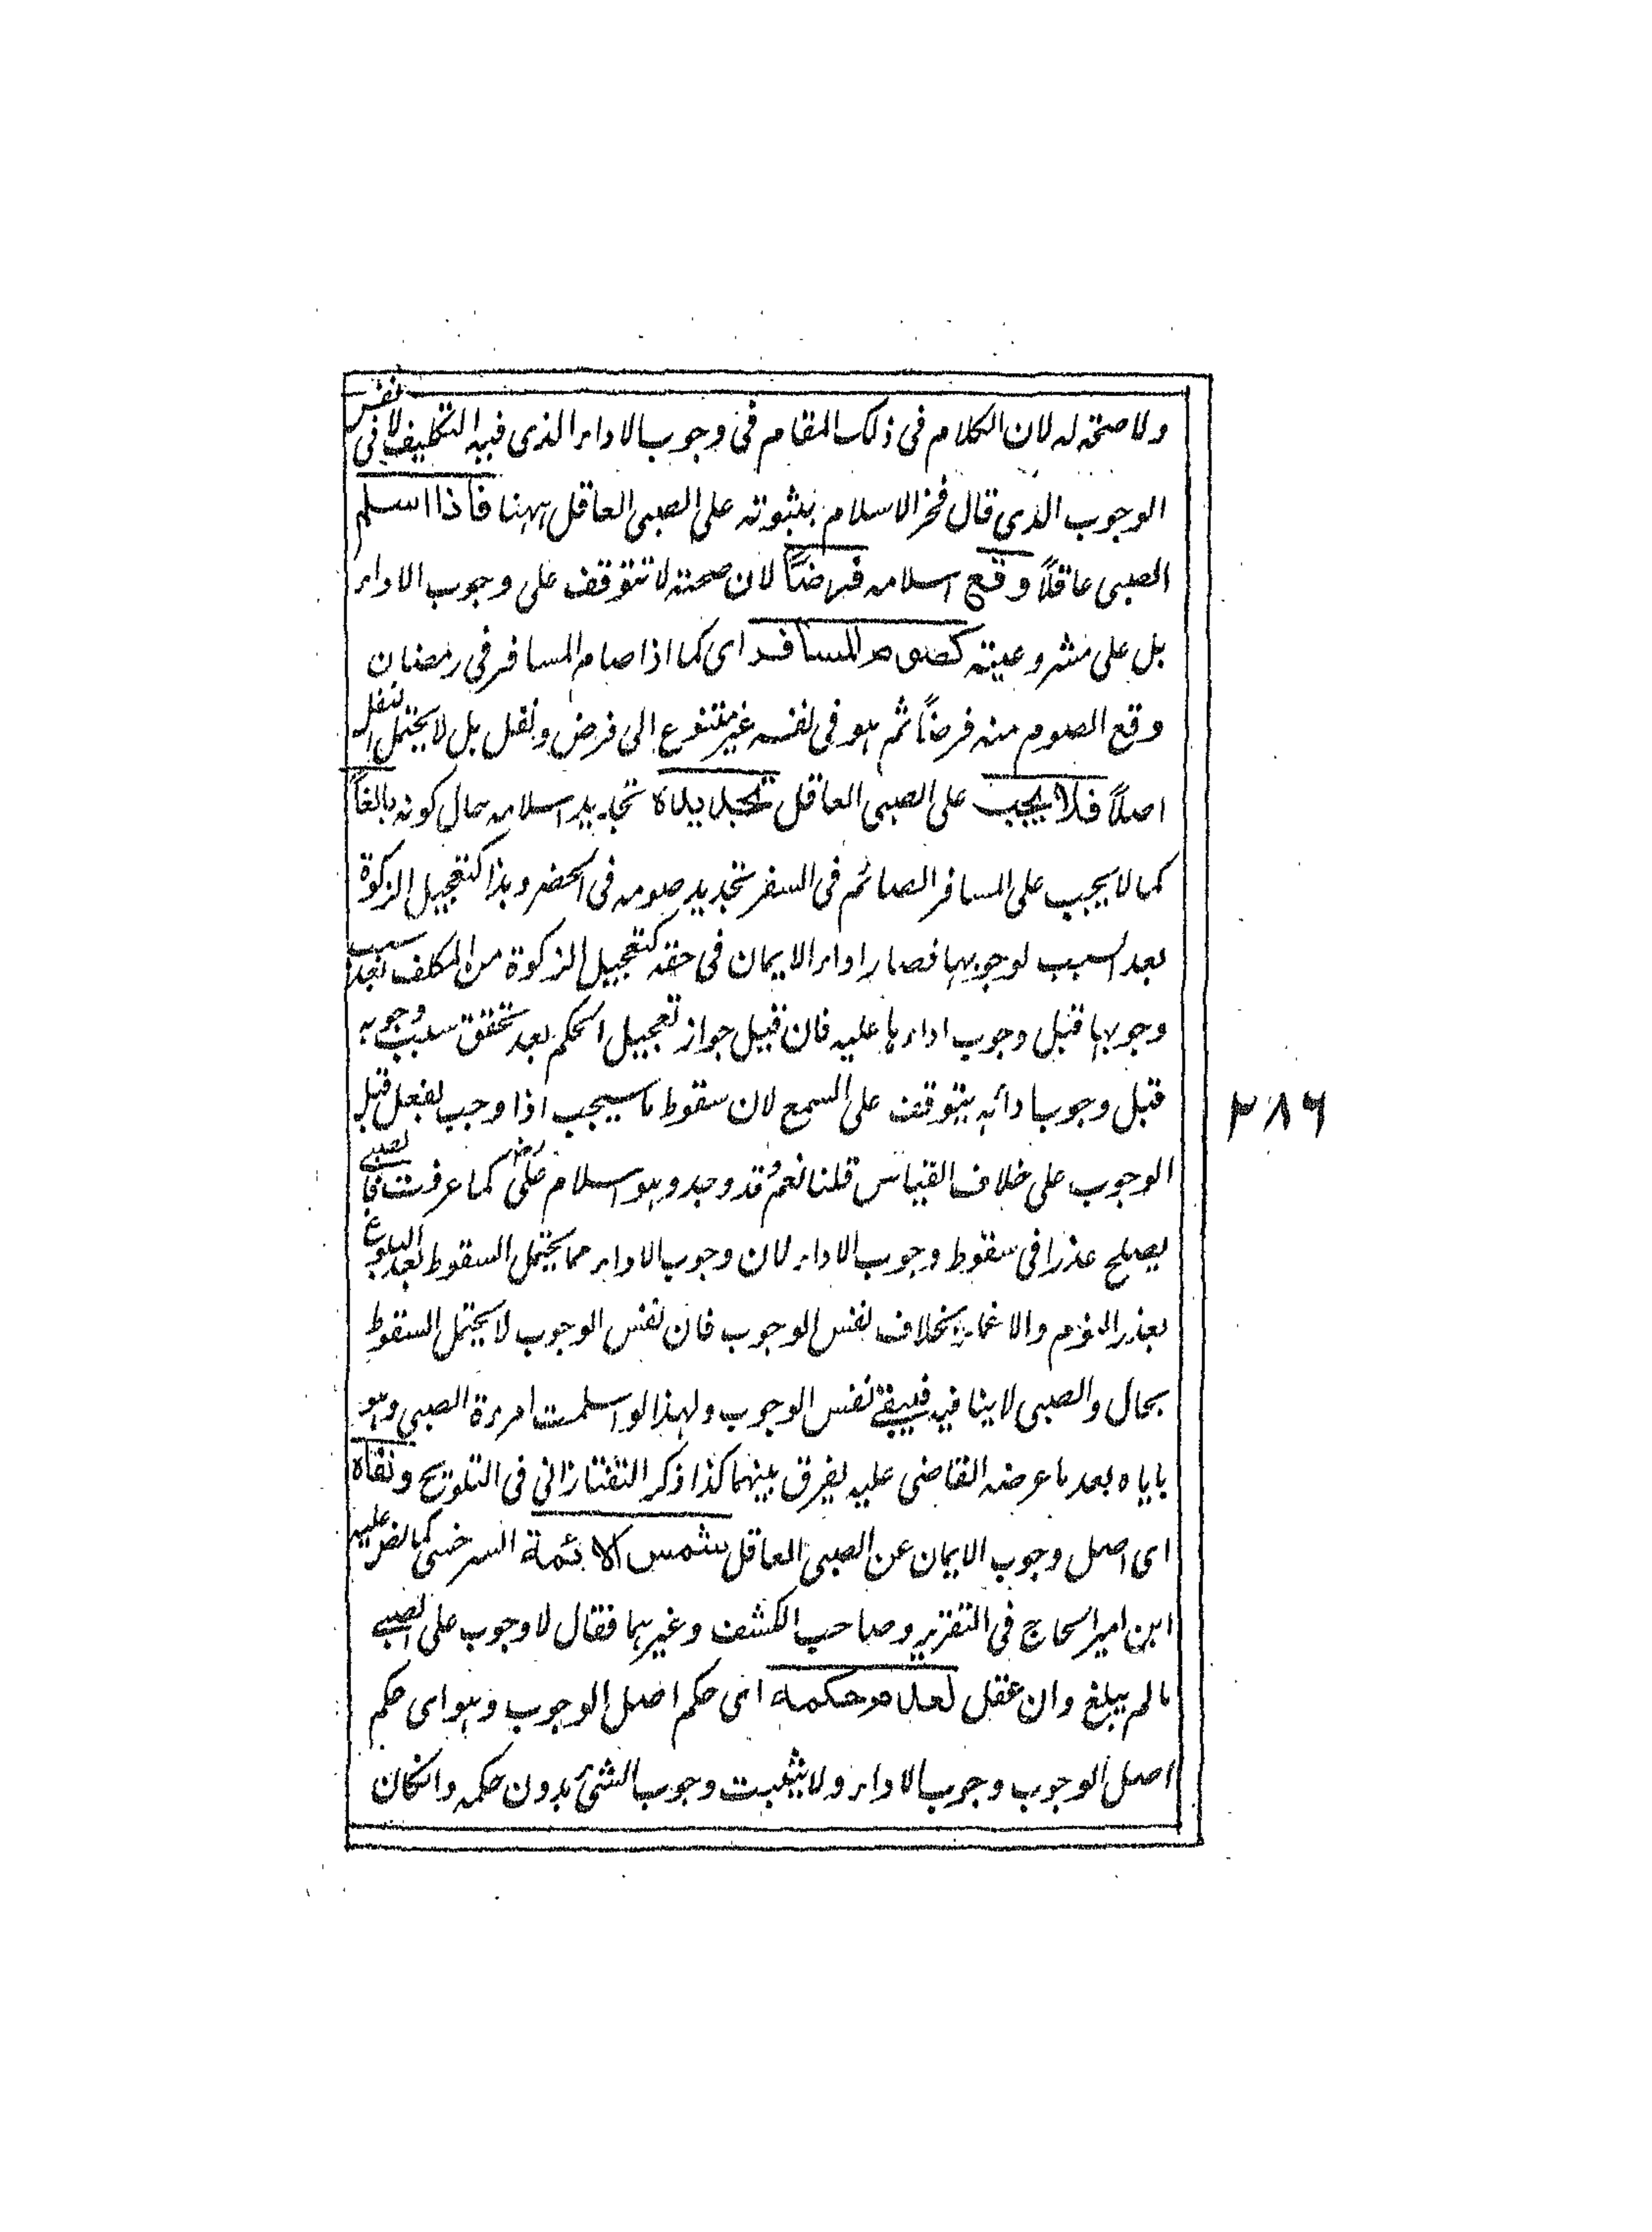 ولا صحة له لان الكلام فى ذلك المقام فى وجوب الاداء الذى فيه التكليف لا فى نفس
الوجوب الذى قال فخر الاسلام بثبوته على الصبى العاقل ههنا فاذا اسلم
الصبى عاقلاً وقع اسلامه فرضاً لان صحته لا تتوقف على وجوب الاداء
بل على مشروعيته كصوم المسافر اى كما اذا صام المسافر فى رمضان
وقع الصوم منه فرضاً ثم هو فى نفسه غير متنوع الى فرض ونفل بل لا يحتمل النفل
اصلاً فلا يجب على الصبى العاقل تجديده تجديد اسلامه حال كونه بالغاً
كما لا يجب على المسافر الصائم فى السفر تجديد صومه فى الحضر وهذا كتعجيل الزكوة
بعد السبب لوجوبها فصار اداء الايمان فى حقه كتعجيل الزكوة من المكلف بعد سبب
وجوبها قبل وجوب ادائها عليه فان قيل جواز تعجيل الحكم بعد تحقق سبب وجوبه
قبل وجوب ادائه يتوقف على السمع لان سقوط ما سيجب اذا وجب بفعل قبل
الوجوب على خلاف القياس قلنا نعم وقد وجد وهو اسلام على رض كما عرفت فالصبى
يصلح عذرا فى سقوط وجوب الاداء لان وجوب الاداء مما يحتمل السقوط بعد البلوغ
بعذر النوم والاغماء بخلاف نفس الوجوب فان نفس الوجوب لا يحتمل السقوط
بحال والصبى لا ينافيه فيبقى نفس الوجوب ولهذا لو اسلمت امرءة الصبى وهو
ياباه بعد ما عرضه القاضى عليه يفرق بينهما كذا ذكر التفتازانى فى التلويح ونفاه
اى اصل وجوب الايمان عن الصبى العاقل شمس الائمة السرخسى كما نص عليه
ابن امير الحاج فى التقرير وصاحب الكشف وغيرهما فقال لا وجوب على الصبى
ما لم يبلغ وان عقل لعدم حكمه اى حكم اصل الوجوب وهو اى حكم
اصل الوجوب وجوب الاداء ولا يثبت وجوب الشئ بدون حكمه وان كان
٣٨٦